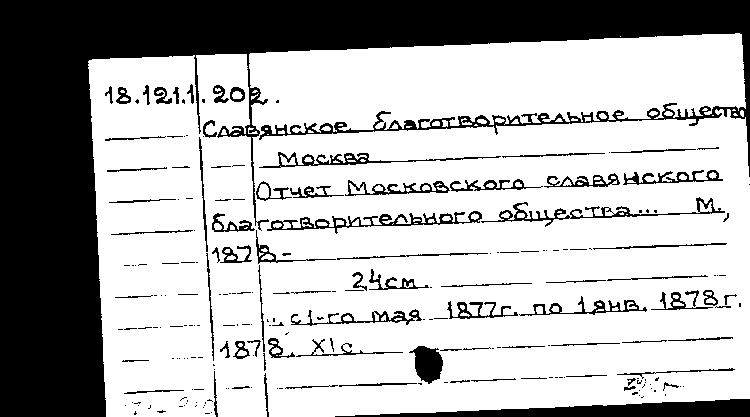 18.121.1.202.
Славянское благотворительное общество
Москва
Отчет Московского славянского
благотворительного общества... М.,
1878-
24см.
... с 1-го мая 1877г. по 1 янв. 1878г.
1878. XI с.